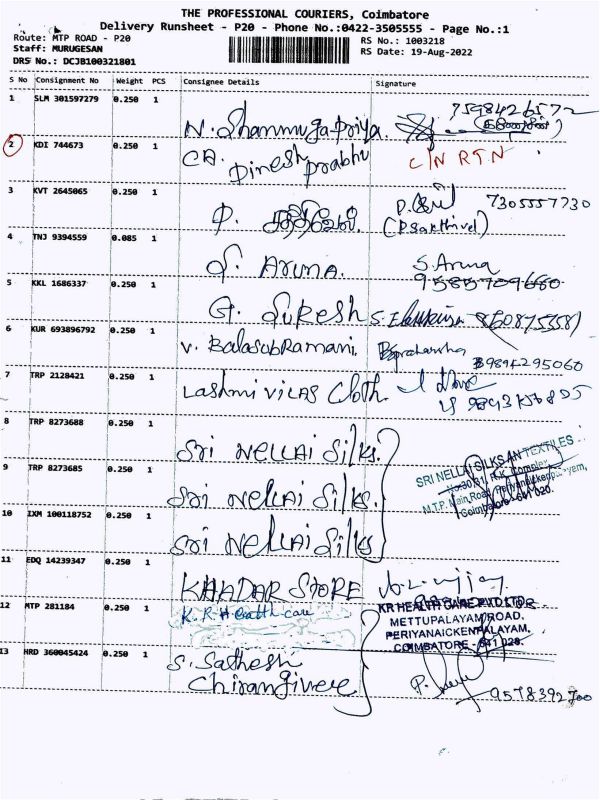 THE PROFESSIONAL COURIERS, Coimbatore
Delivery Runsheet - P20 - Phone No.:0422-3505555 - Page No.:1
Route: MTP ROAD - P20 RS No.: 1003218
Staff: MURUGESAN RS Date: 19-Aug-2022
DRS No.: DCJB100321801
S No Consignment No Weight PCS Consignee Details Signature
1 SLM 301597279 0.250 1 N. Shanmuga Priya 7598426572
2 KDI 744673 0.250 1 CA. Dinesh Prabhu C/N RTN
3 KVT 2645065 0.250 1 P. சக்திவேல். 7305557730
(P.Sakthivel)
4 TNJ 9394559 0.085 1 S. Aruna. S. Aruna
9585709660
5 KKL 1686337 0.250 1 G. Suresh
6 KUR 693896792 0.250 1 V. Balasubramani. 9894295060
7 TRP 2128421 0.250 1 Lashmi vilas cloth.
8 TRP 8273688 0.250 1 Sri Nellai Silks.
9 TRP 8273685 0.250 1 Sri Nellai Silks.
SRI NELLAI SILKS AN TEXTILES
R.K. Complex
M.T.P. Main Road, Periyanaickenpalayam,
Coimbatore - 641 020.
10 IXM 100118752 0.250 1 Sri Nellai Silks
11 EDQ 14239347 0.250 1 KHADAR STORE
12 MTP 281184 0.250 1 K.R Health care
KR HEALTH CARE PVT LTD
METTUPALAYAM ROAD.
PERIYANAICKENPALAYAM,
COIMBATORE - 641 020.
13 HRD 360045424 0.250 1 S. Sathesh
Chiranjivere
9578392700